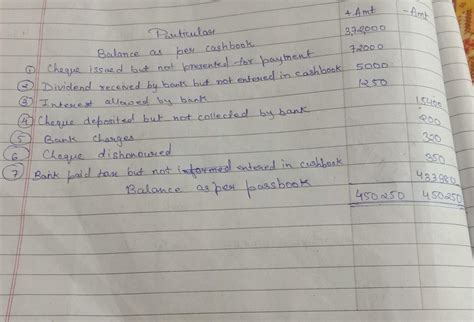 Particular + Amt - Amt
Balance as per cashbook 372000
① Cheque issued but not presented for payment 72000
② Dividend received by bank but not entered in cashbook 5000
③ Interest allowed by bank 1250
④ Cheque deposited but not collected by bank 15400
⑤ Bank charges 200
⑥ Cheque dishonoured 320
⑦ Bank paid tax but not informed entered in cashbook 350
Balance as per passbook 433980
450250 450250